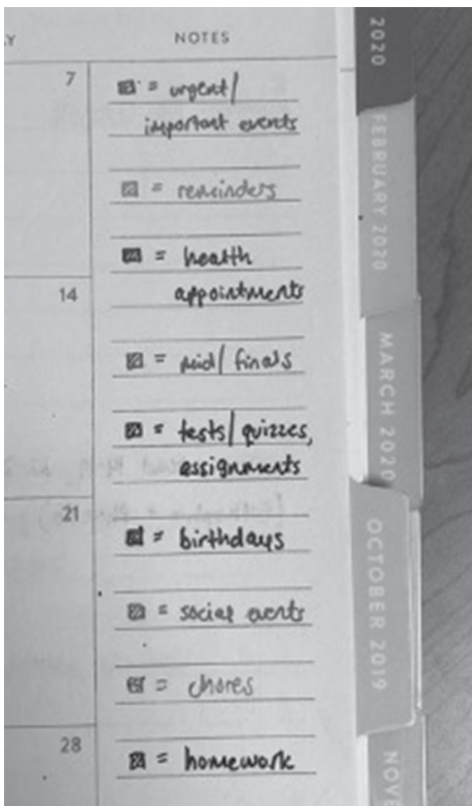 Y
NOTES
7
= urgent/
important events
= reminders
= health
appointments
14
= mid/finals
= tests/quizzes,
assignments
21
= birthdays
= social events
= chores
28
= homework
2020
FEBRUARY 2020
MARCH 2020
OCTOBER 2019
NOV